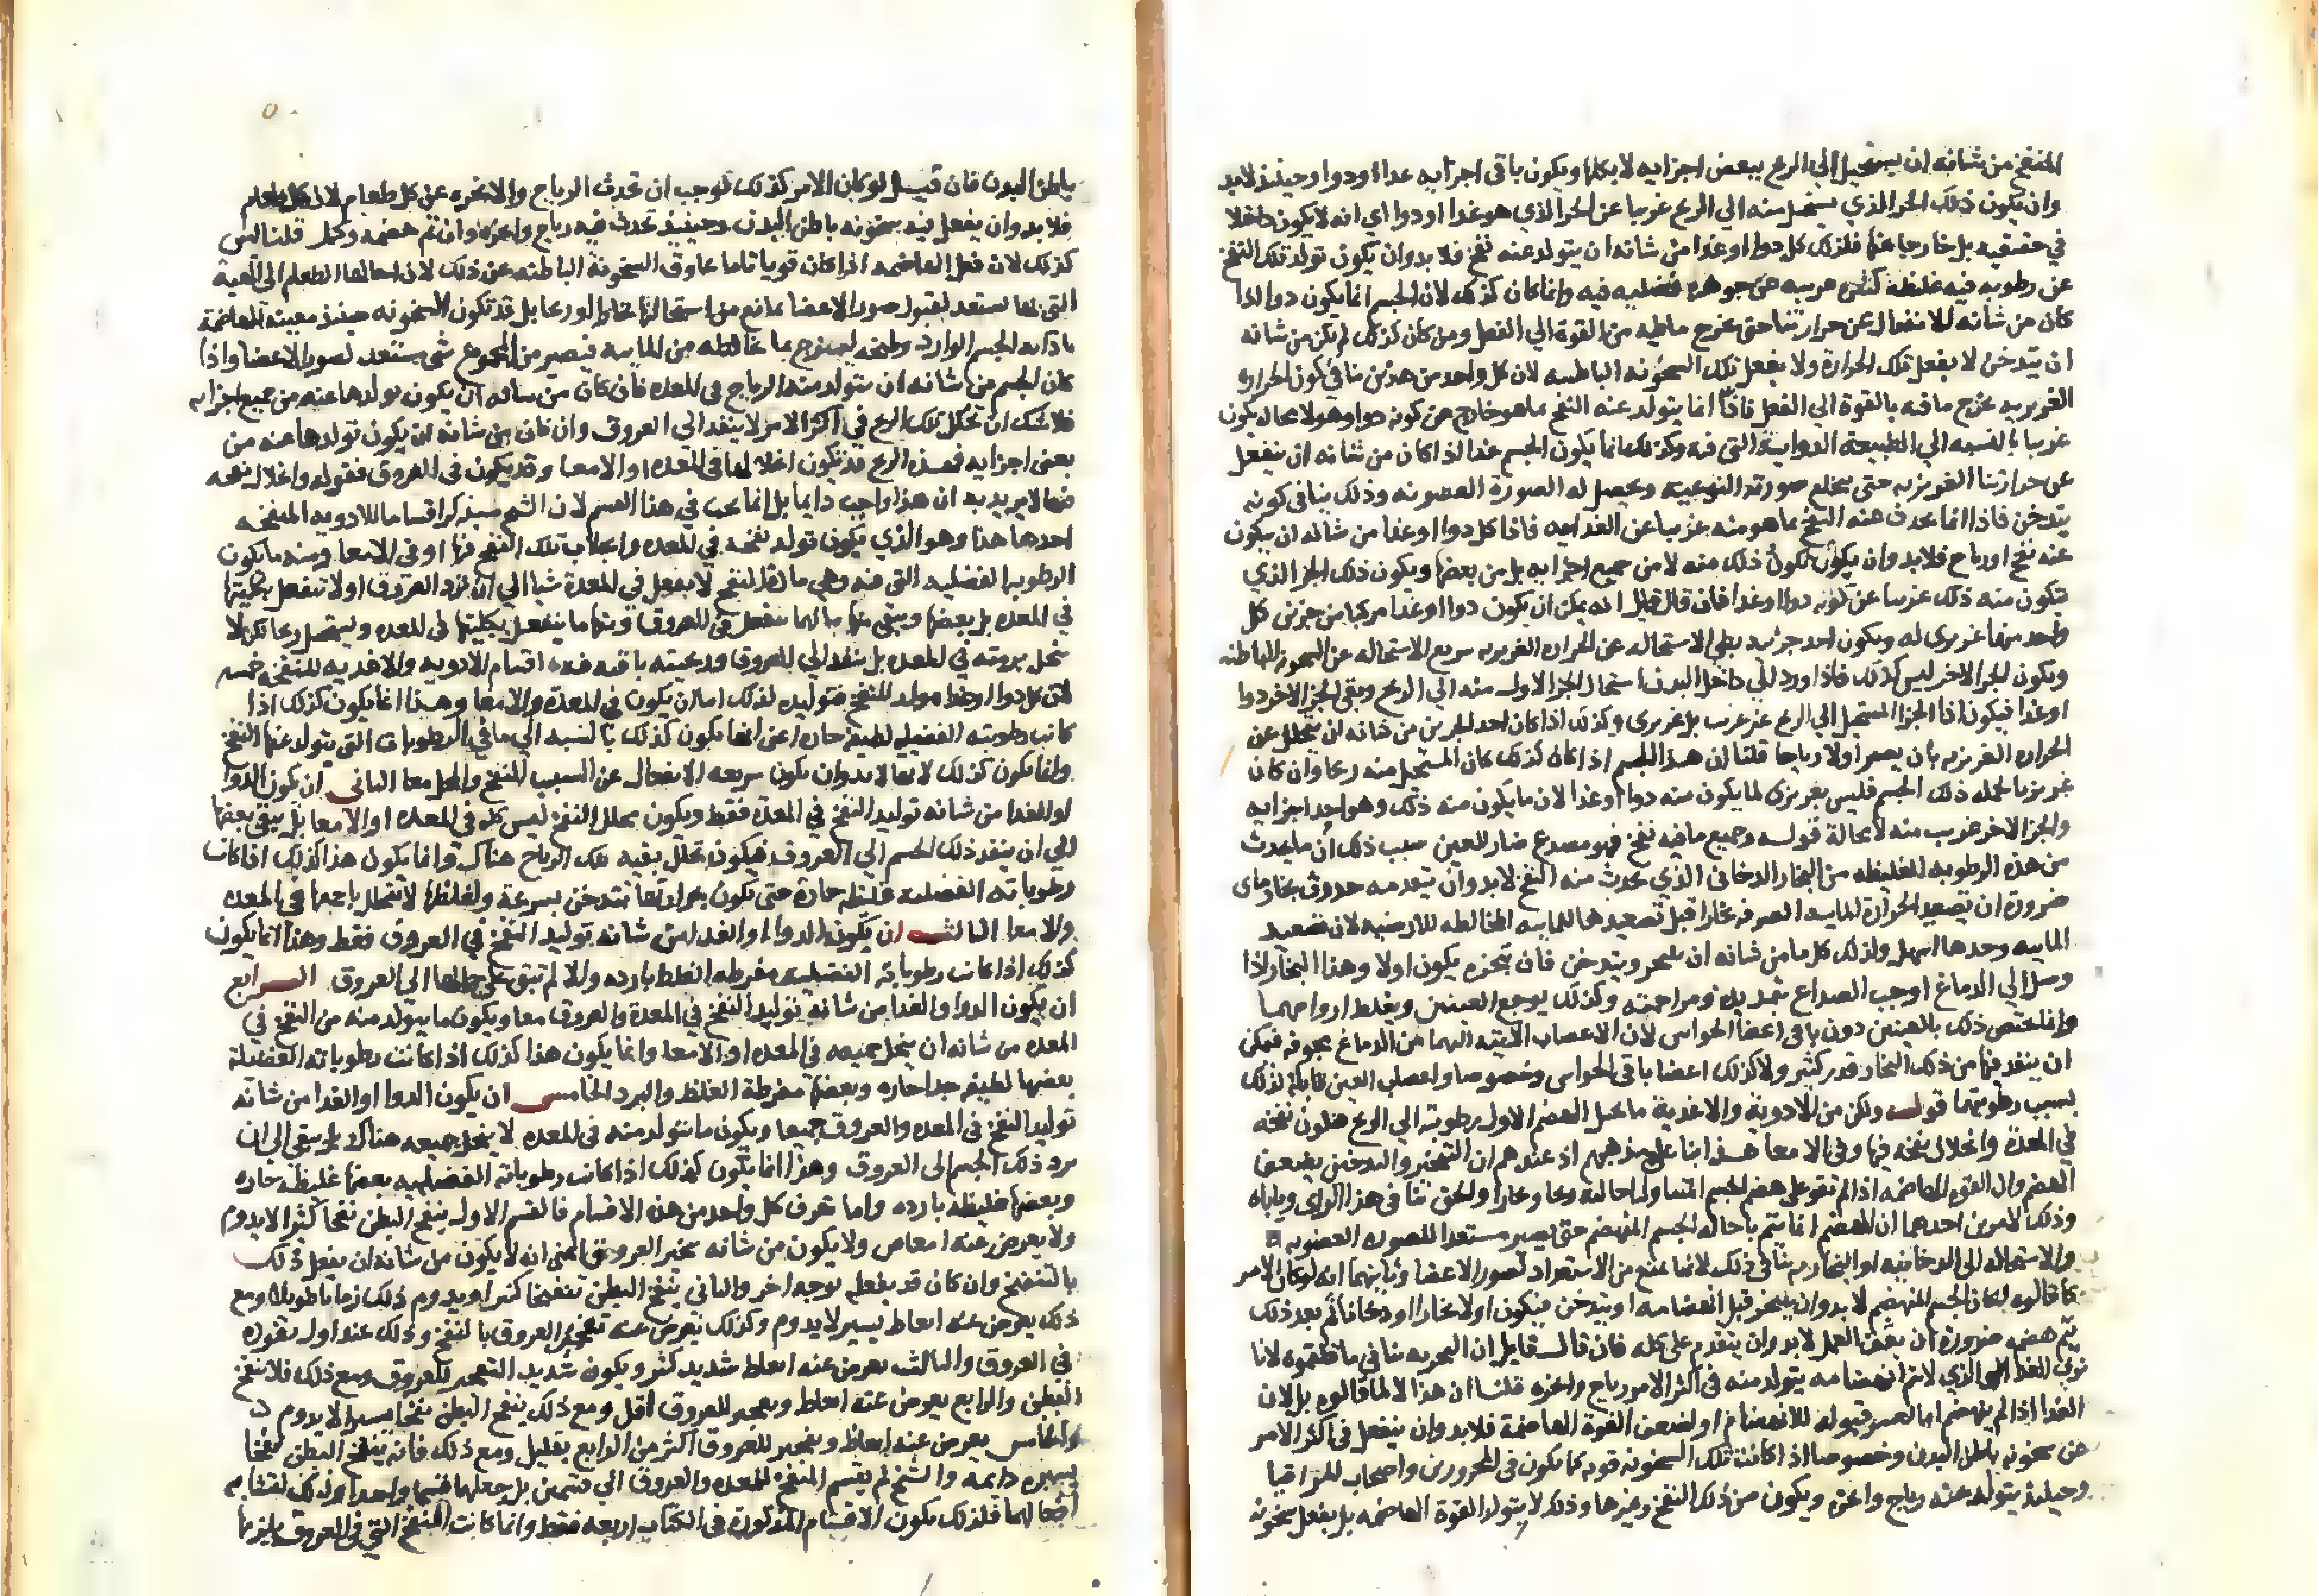 المنفخ من شانه ان يستحيل الي الريح ببعض اجزايه لا بكلها ويكون باقي اجزايه غدا او دوا وحينئذ لابد
وان يكون ذلك الجز الذي يستحيل منه الي الريح غريبا عن الجز الذي هو غدا او دوا اي انه لا يكون داخلا
في حقيقته بل خارجا عنها فلذلك كل دوا او غدا من شانه ان يتولد عنه نفخ فلا بدوان يكون تولد تلك النفخ
عن رطوبه فيه غليظه غريبه عن جوهره فضليه فيه وانما كان كذلك لان الجسم انما يكون دوا اذا
كان من شانه الانفعال عن حرارتنا حتى يخرج ماطيه من القوة الي الفعل ومن كان كذلك لم يكن من شانه
ان يتدخن لا بفعل تلك الحرارة ولا بفعل تلك السخونه الباطنه لان كل واحد من هذين ينافي كون الحراره
الغريزيه تخرج ما فيه بالقوة الي الفعل فاذا انما يتولد عنه النفخ بما هو خارج عن كونه دوا وهو لا محاله يكون
غريبا بالنسبه الي الطبيعة الدوايية التي فيه وكذلك انما يكون الجسم غدا اذا كان من شانه ان ينفعل
عن حرارتنا الغريزيه حتى يخلع صورته النوعيه ويحصل له الصورة العضويه وذلك ينافي كونه
يتدخن فاذا انما يحدث عنه النفخ بما هو منه غريبا عن الغدايه فاذا كل دوا او غدا من شانه ان يكون
عنه نفخ او رياح فلا بد وان يكون تكون ذلك منه لا من جميع اجزايه بل من بعضها ويكون ذلك الجز الذي
يتكون منه ذلك غريبا عن كونه دوا او غدا فان قال قايل انه يمكن ان يكون دوا او غدا مركبا من جزين كل
واحد منها غريزي له ويكون احد جزئيه بطي الاستحاله عن الحراره الغريزيه سريع الاستحاله عن السخونه الباطنه
ويكون الجز الاخر ليس كذلك فاذا ورد الي داخل البدن استحال الجز الاول منه الي الريح وبقي الجز الاخر دوا
او غدا فيكون اذا الجز المستحيل الي الريح غير غريب بل غريزي وكذلك اذا كان احد الجزين من شانه ان يتحلل عن
الحراره الغريزيه بان يصير اولا رياحا قلنا ان هذا الجسم اذا كان كذلك كان المستحيل منه ريحا وان كان
غريزيا لجمله ذلك الجسم فليس بغريزي لما يكون منه دوا او غدا لان ما يكون منه ذلك وهو احد اجزايه
والجز الاخر غريب منه لا محالة قوله وجميع ما فيه نفخ فهو مصدع ضار للعين سبب ذلك ان ما يحدث
من هذه الرطوبه الغليظه من البخار الدخاني الذي يحدث منه النفخ لابد وان يتقدمه حدوث بخار ماي
ضرورة ان تصعيد الحرارة للماييه الصرفه بخارا قبل تصعيدها للماييه المخالطه للارضيه لان تصعيد
الماييه وحدها اسهل ولذلك كل ما من شانه ان يتبخر ويتدخن فان تبخره يكون اولا وهذا البخار اذا
وصل الي الدماغ اوجب الصداع بتمديده ومزاحمته وكذلك يوجع العينين ويغلظ ارواحهما
وانما يختص ذلك بالعينين دون باقي اعضا الحواس لان الاعصاب الاتيه اليهما من الدماغ مجوفه فيمكن
ان ينفد فيها من ذلك البخار قدر كثير ولا كذلك اعضا باقي الحواس وخصوصا واعصاب العين قابله لذلك
بسبب رطوبتهما قوله ولكن من الادوية والاغدية ما يحيل الهضم الاول رطوبته الي الريح فيكون نفخه
في المعدة وانحلال نفخه فيها وفي الامعا هذا بنا علي مذهبهم اذ عندهم ان التبخير والتدخين بضعف
الهضم وان القوه الهاضمه اذا لم تقو علي هضم الجسم المتناول احالته ريحا وبخارا ولنحن ننافي هذا الراي وياباه
وذلك لامرين احدهما ان الهضم انما يتم باحاله الجسم المنهضم حتى يصير مستعدا للصوره العضويه
والاستحاله الي الدخانيه او البخاريه ينافي ذلك لانها تمنع من الاستعداد لصور الاعضا وثانيهما انه لو كان الامر
كما قالوه لكان الجسم المنهضم لا بد وان يتبخر قبل انهضامه او يتدخن فيكون اولا بخارا او دخانا ثم بعد ذلك
يتم هضمه ضرورة ان بعض العمل لا بد وان يتقدم علي كله فان قال قايل ان التجربه تنافي ما قلتموه لانا
نري الغدا الذي لا يتم انهضامه يتولد منه في اكثر الامر رياح وابخره قلنا ان هذا لا لما قالوه بل لان
الغدا اذا لم ينهضم اما لعسر قبوله للانهضام او لضعف القوة الهاضمة فلا بد وان ينفعل في اكثر الامر
عن سخونه باطن البدن وخصوصا اذا كانت تلك السخونه قويه كما يكون في المحرورين واصحاب المراقيا
وحينئذ يتولد عنه رياح وابخره ويكون من ذلك النفخ وغيرها وذلك لا بتولد القوة الهاضمه بل بفعل سخونه
باطن البدن فان قيل لو كان الامر كذلك لوجب ان تحدث الرياح والابخره عن كل طعام لان كل طعام
فلا بد وان يفعل فيه سخونه باطن البدن وحينئذ تحدث فيه رياح وابخره وان تم هضمه وكمل قلنا ليس
كذلك لان فعل الهاضمه اذا كان قويا تاما عاوق السخونة الباطنه عن ذلك لان احالتها الطعام الي الهيية
التي بها يستعد لقبول صور الاعضا مانع من استحالتها بخارا او ريحا بل قد تكون السخونه حينئذ معينه للهاضمة
باذابه الجسم الوارد وطبخه ليمتزج بما خالطه من الماييه فيصير من المجموع شي يستعد لصور الاعضا واذا
كان الجسم من شانه ان يتولد منه الرياح في المعده فان كان من شانه ان يكون تولدها عنه من جميع اجزايه
فلا شك ان تحلل تلك الريح في اكثر الامر لا ينفد الي العروق وان كان من شانه ان يكون تولدها عنه من
بعض اجزايه فهذه الريح قد يكون انحلالها في المعده او الامعا وقد يكون في العروق فقوله وانحلال نفخه
فيها لا يريد به ان هذا واجب دايما بل انما يجب في هذا القسم لان الشيخ سيذكر اقساما للادويه المنفخه
احدها هذا وهو الذي يكون تولد نفخه في المعده وانحلال تلك النفخ فيها او في الامعا ومنه ما يكون
الرطوبه الفضليه التي فيه وهي مادة النفخ لا تنفعل في المعدة شيا الي ان ترد العروق او لا تنفعل بكليتها
في المعده بل بعضها ويبقي منها ما انما ينفعل في العروق ومنها ما ينفعل بكليتها في المعده ويستحيل ريحا لكن لا
ينحل برمته في المعده بل ينفد الي العروق وبقيته باقيه فهذه اقسام الادويه والاغديه المنفخه خمسه
لان كل دوا او غدا مولد للنفخ فتوليده لذلك اما ان يكون في المعدة والامعا وهذا انما يكون كذلك اذا
كانت رطوبته الفضليه لطيفه حاره اعني انها يكون كذلك بالنسبه الي باقي الرطوبات التي يتولد عنها النفخ
وانما يكون كذلك لانها لابد وان يكون سريعه الانفعال عن السبب المنفخ والمحلل معا الثاني ان يكون الدوا
او الغدا من شانه توليد النفخ في المعدة فقط ويكون تحلل النفخ ليس كله في المعده او الامعا بل يبقي بعضها
الي ان ينفد ذلك الجسم الي العروق فيكون تحلل بقيه تلك الرياح هناك وانما يكون هذا كذلك اذا كانت
رطوباته الفضليه غليظه حارة حتى يكون بحرارتها تتدخن بسرعة ولغلظها لا تتحلل باجمعها في المعده
والامعا الثالث ان يكون الدوا او الغدا من شانه توليد النفخ في العروق فقط وهذا انما يكون
كذلك اذا كانت رطوباته الفضليه مفرطه الغلظ بارده والا لم تبق علي حالها الي العروق الرابع
ان يكون الدوا والغدا من شانه توليد النفخ في المعدة والعروق معا ويكون ما يتولد منه من النفخ في
المعده من شانه ان ينحل جميعه في المعده او الامعا وانما يكون هذا كذلك اذا كانت رطوباته الفضلية
بعضها لطيفه جدا حاره وبعضها مفرطة الغلظ والبرد الخامس ان يكون الدوا او الغدا من شانه
توليد النفخ في المعده والعروق جميعا ويكون ما يتولد منه في المعده لا ينحل جميعه هناك بل يبقي الي ان
يرد ذلك الجسم الي العروق وهذا انما يكون كذلك اذا كانت رطوباته الفضليه بعضها غليظه حاره
وبعضها غليظه بارده واما تعرف كل واحد من هذه الاقسام فالقسم الاول ينفخ البطن نفخا كثيرا لا يدوم
ولا يعرض عنه امعاص ولا يكون من شانه تبخير العروق اعني انه لا يكون من شانه ان يفعل ذلك
بالتنفخ وان كان قد يفعله بوجه اخر والثاني ينفخ البطن تنفيخا كثيرا ويدوم ذلك زمانا طويلا ومع
ذلك يعرض عنه انعاظ يسير لا يدوم وكذلك يعرض عنه تفجير العروق بالنفخ وذلك عند اول نفوذه
في العروق والثالث يعرض عنه انعاظ شديد كثير ويكون شديد التفجير للعروق ومع ذلك فلا ينفخ
البطن والرابع يعرض عنه انعاظ وتفجير للعروق اقل ومع ذلك ينفخ البطن نفخا يسيرا لا يدوم
والخامس يعرض عنه انعاظ وتفجير للعروق اكثر من الرابع بقليل ومع ذلك فانه ينفخ البطن نفخا
يسيره دايمه والشيخ لم يقسم المنفخ للمعده والعروق الي قسمين بل جعلهما قسما واحدا وذلك لتشابه
افعالهما فلذلك يكون الاقسام المذكورة في الكتاب اربعه فقط وانما كانت النفخ التي في العروق يلزمها